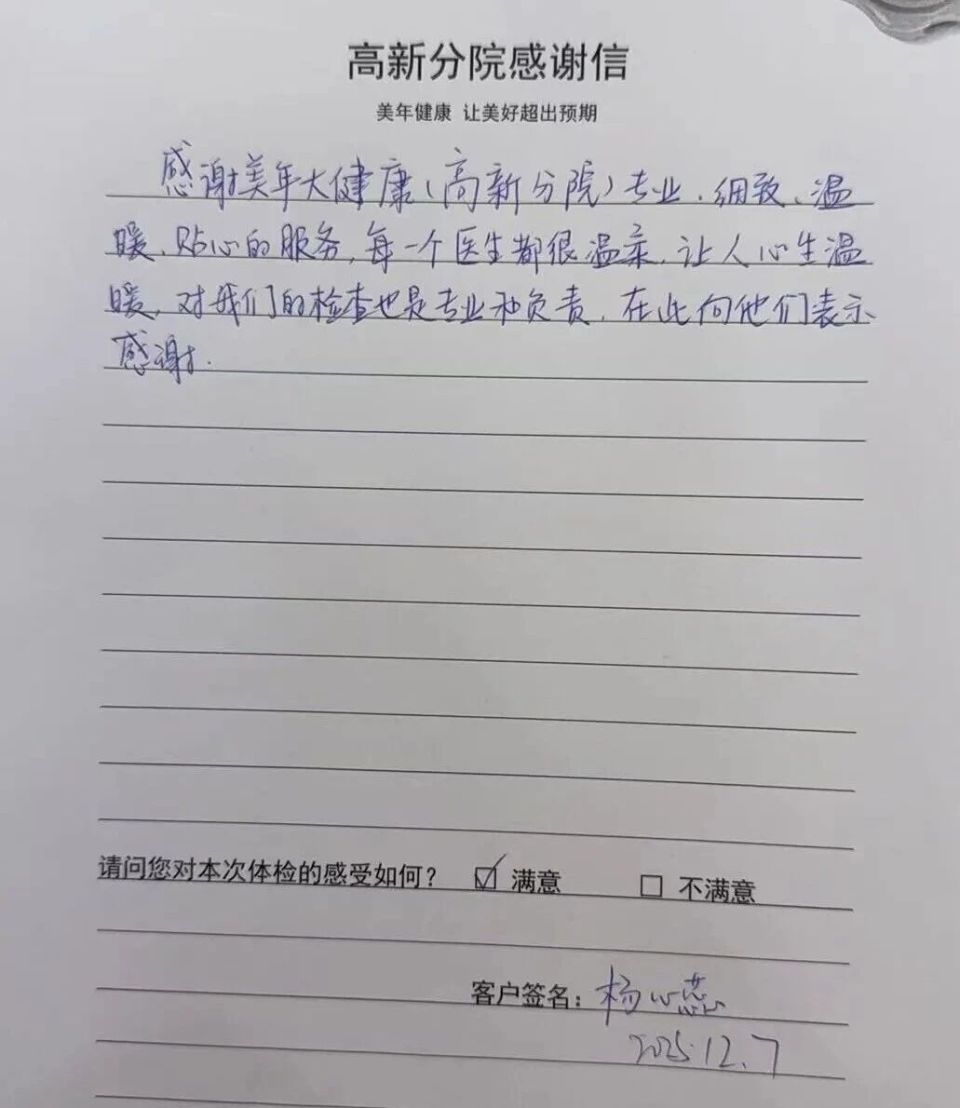 高新分院感谢信
美年健康 让美好超出预期
感谢美年大健康(高新分院)专业、细致、温
暖、贴心的服务,每一个医生都很温柔,让人心生温
暖,对我们的检查也是专业和负责,在此向他们表示
感谢.
请问您对本次体检的感受如何? ☑ 满意 □ 不满意
客户签名:杨心蕊
2025.12.7